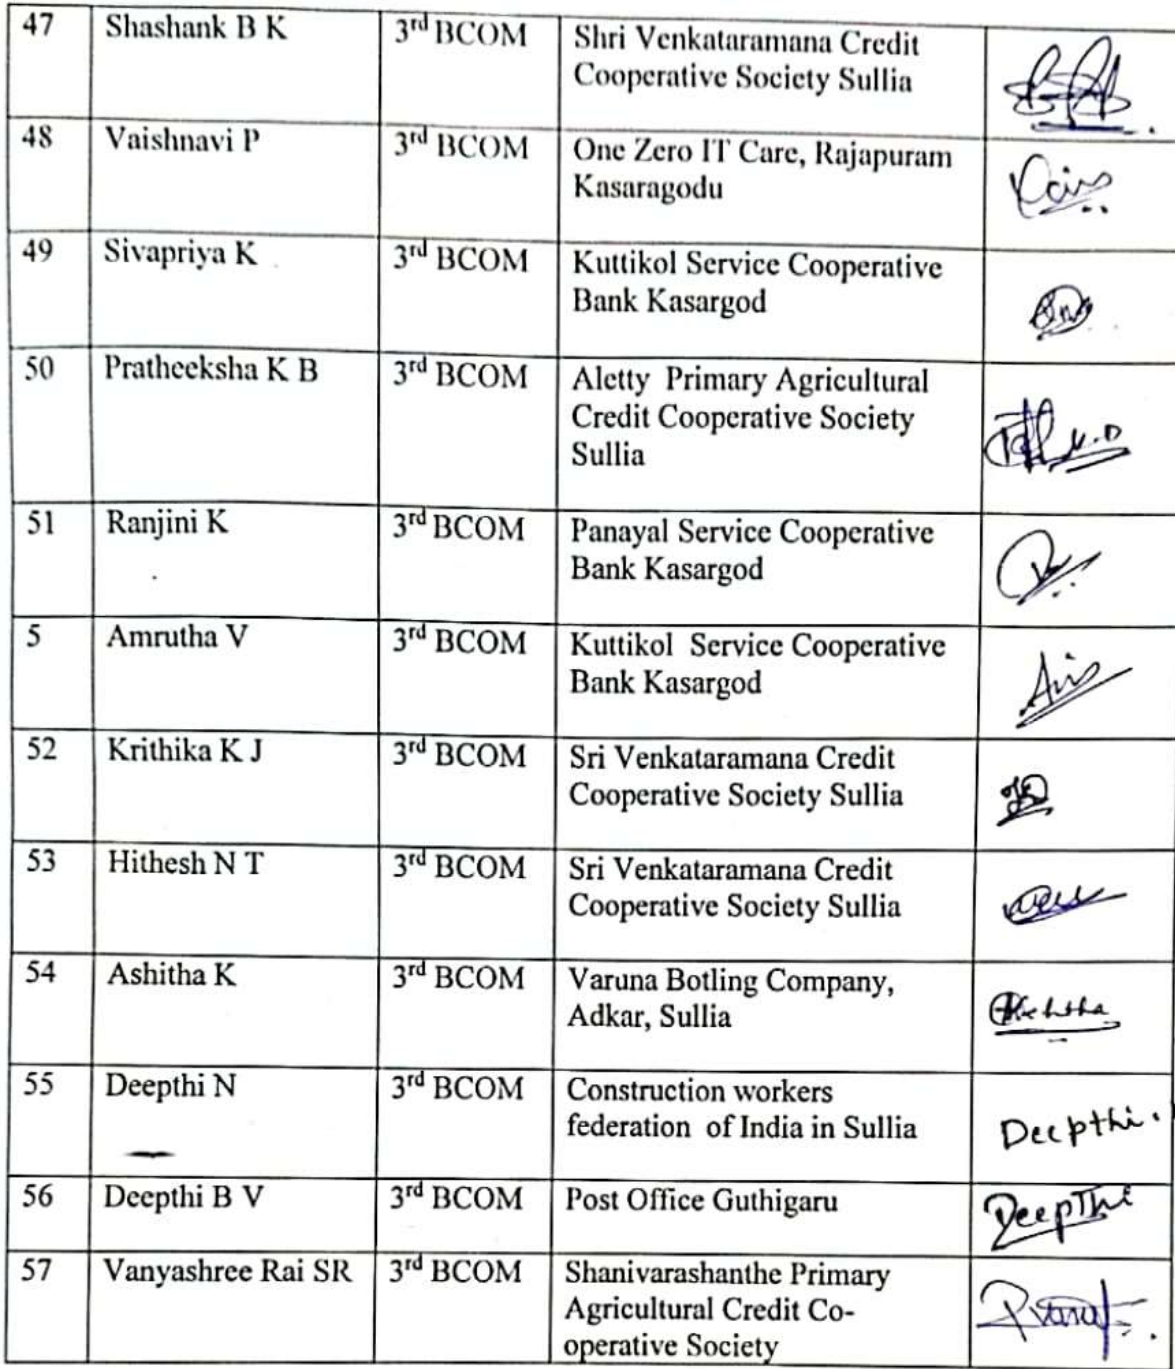 47 Shashank B K 3rd BCOM Shri Venkataramana Credit
Cooperative Society Sullia
48 Vaishnavi P 3rd BCOM One Zero IT Care, Rajapuram
Kasaragodu
49 Sivapriya K 3rd BCOM Kuttikol Service Cooperative
Bank Kasargod
50 Pratheeksha K B 3rd BCOM Aletty Primary Agricultural
Credit Cooperative Society
Sullia
51 Ranjini K 3rd BCOM Panayal Service Cooperative
Bank Kasargod
5 Amrutha V 3rd BCOM Kuttikol Service Cooperative
Bank Kasargod
52 Krithika K J 3rd BCOM Sri Venkataramana Credit
Cooperative Society Sullia
53 Hithesh N T 3rd BCOM Sri Venkataramana Credit
Cooperative Society Sullia
54 Ashitha K 3rd BCOM Varuna Botling Company,
Adkar, Sullia
55 Deepthi N 3rd BCOM Construction workers
federation of India in Sullia Deepthi.
56 Deepthi B V 3rd BCOM Post Office Guthigaru DeepThi
57 Vanyashree Rai SR 3rd BCOM Shanivarashanthe Primary
Agricultural Credit Co-
operative Society